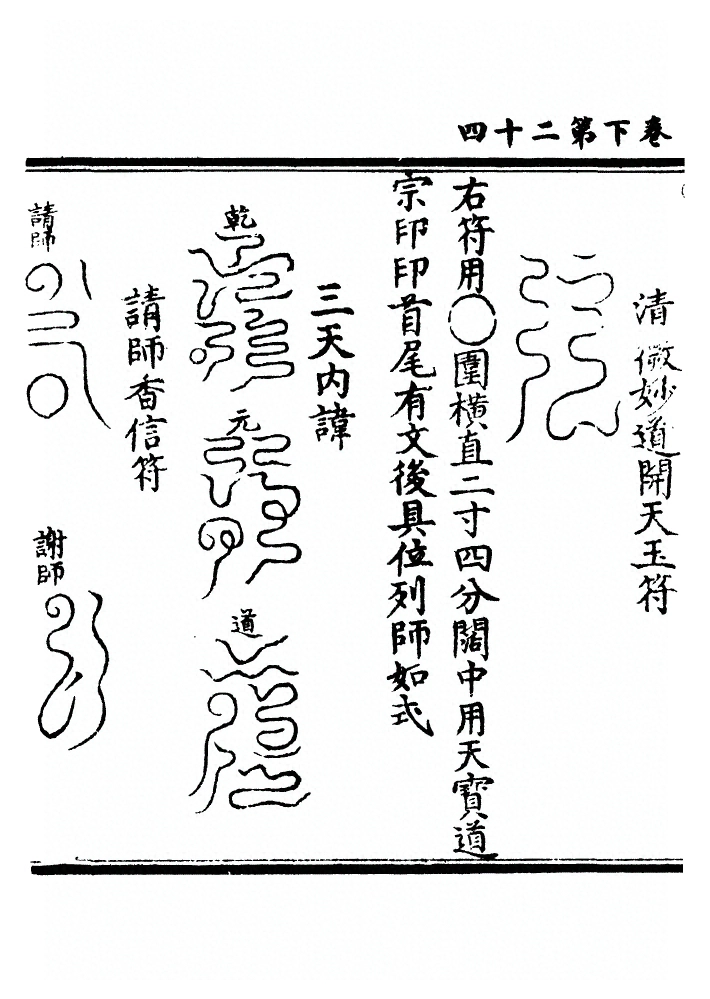 卷下第二十四
清微妙道開天玉符
右符用〇圍橫直二寸四分闊中用天寶道
宗印印首尾有文後具位列師如式
三天內諱
乾
元
道
請師香信符
請師
謝師